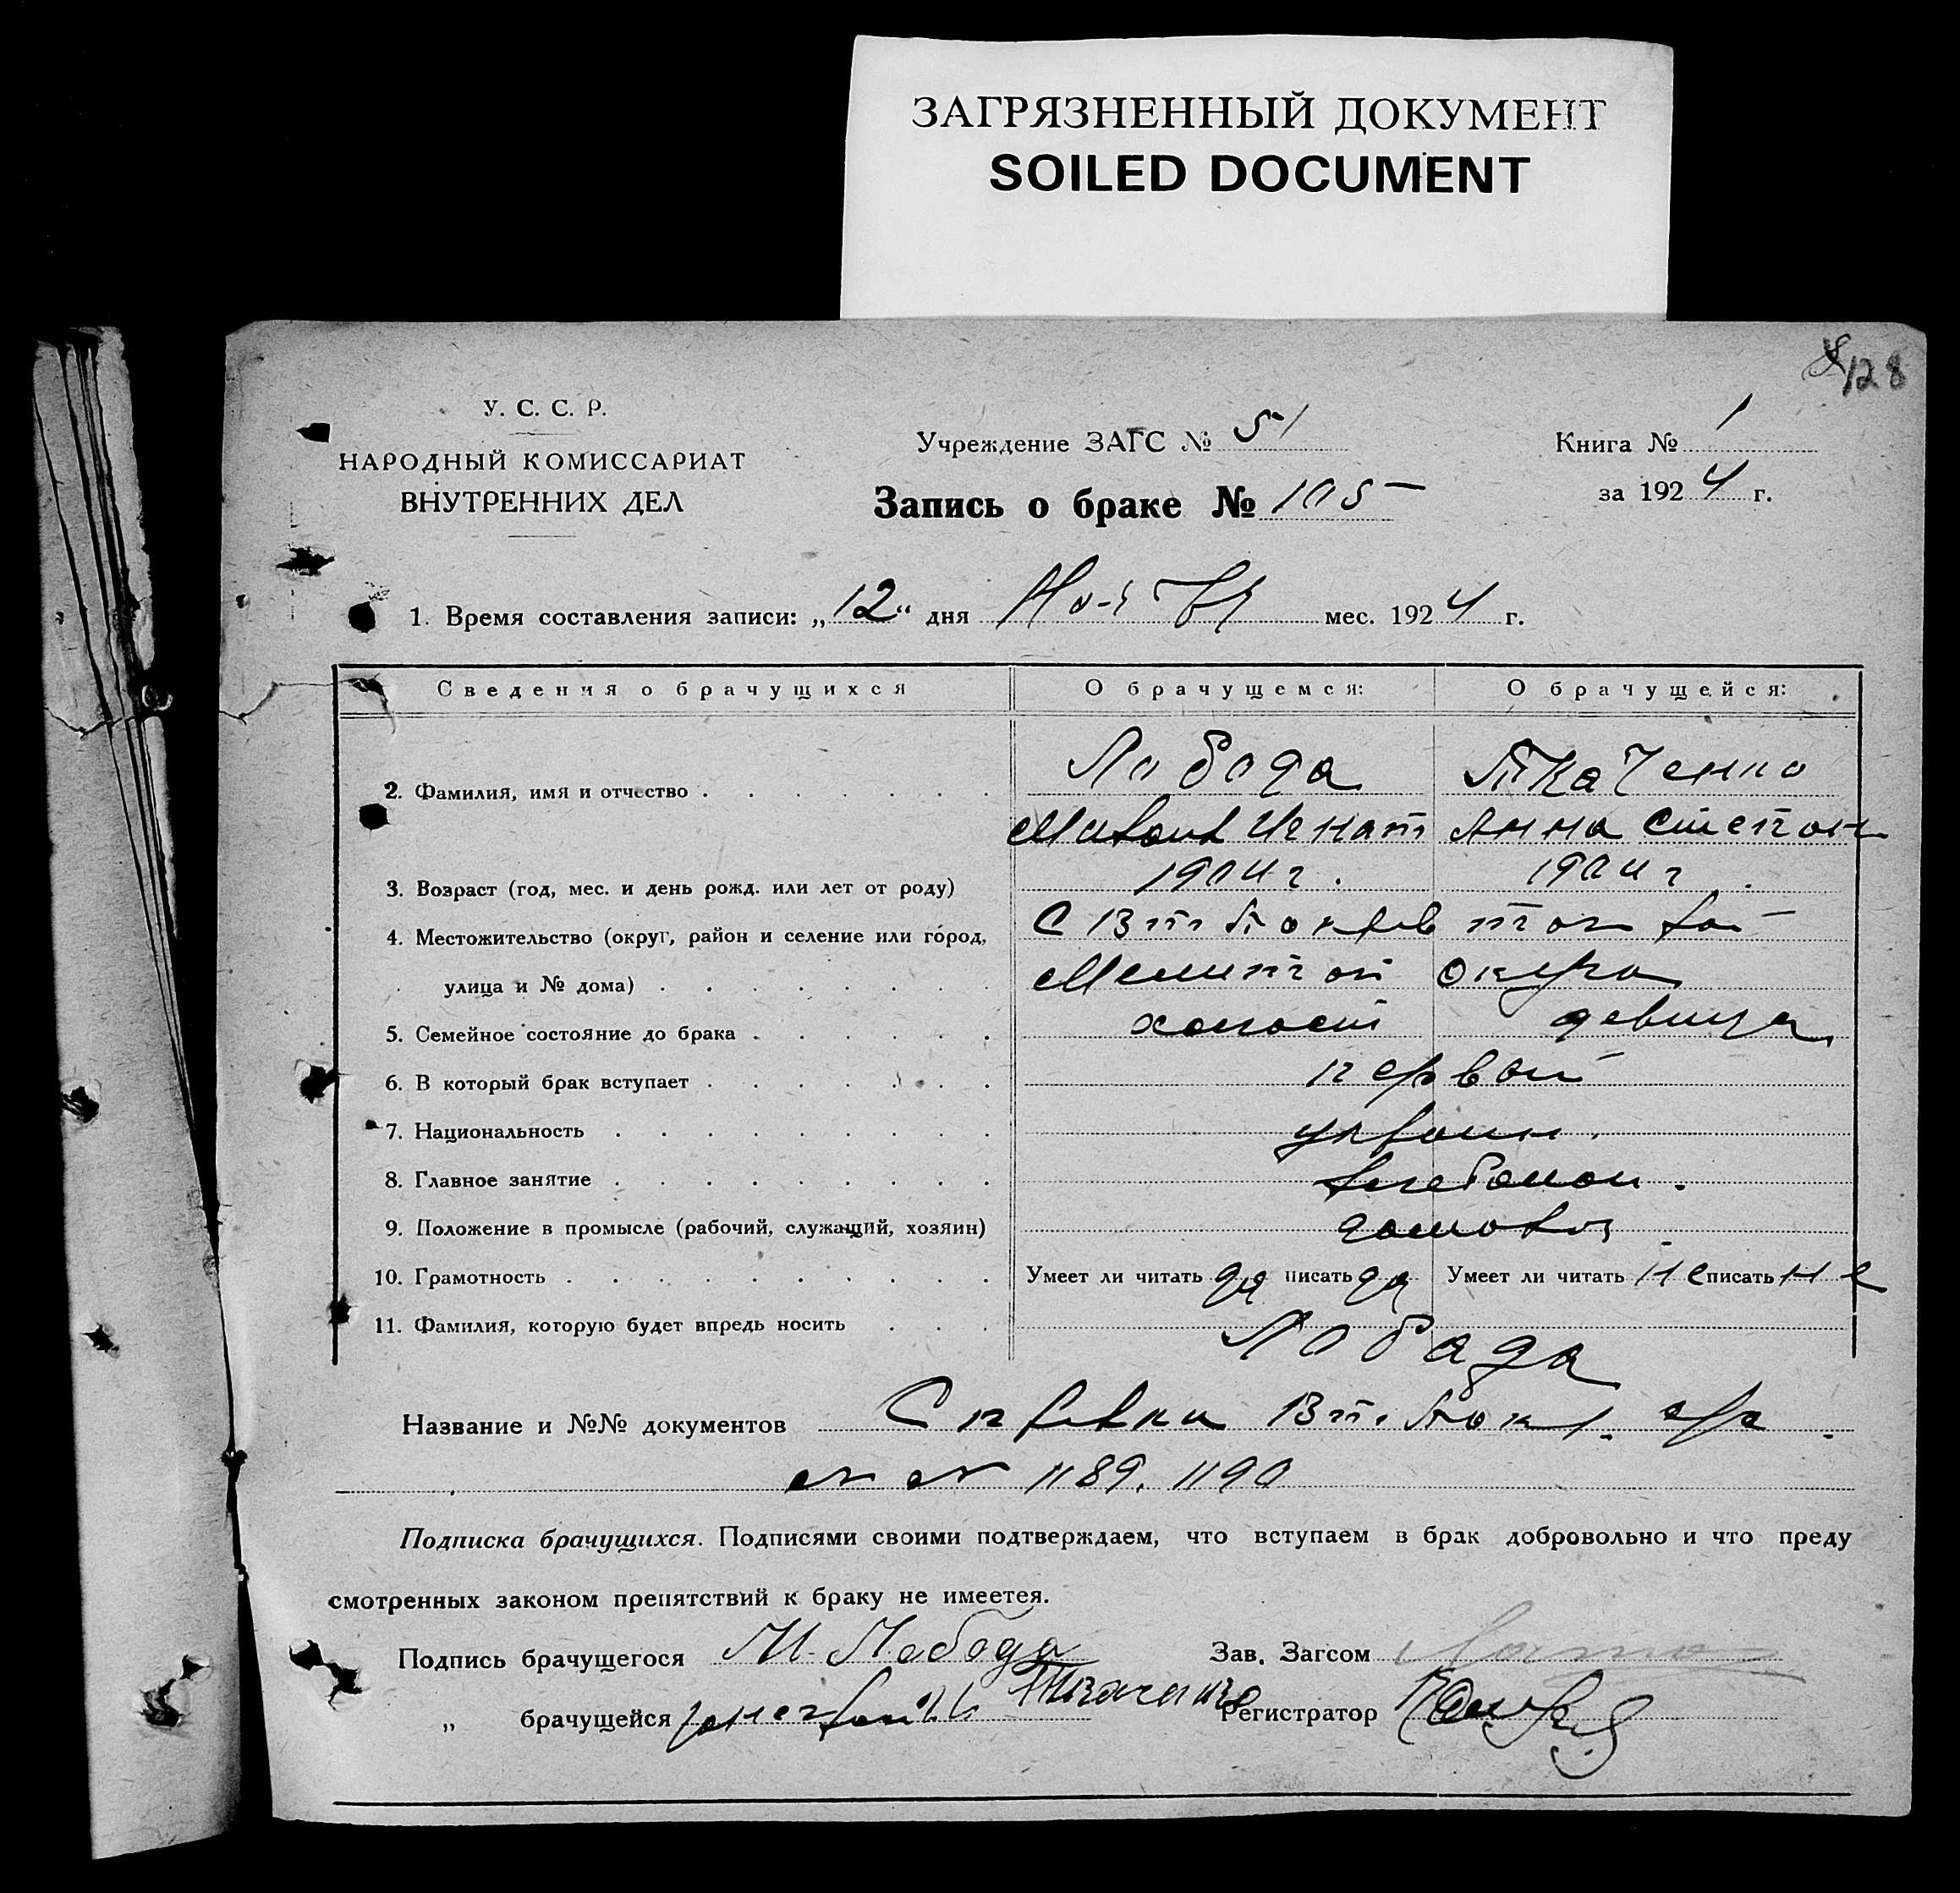 ЗАГРЯЗНЕННЫЙ ДОКУМЕНТ
SOILED DOCUMENT
128
У. С. С. Р.
НАРОДНЫЙ КОМИССАРИАТ
ВНУТРЕННИХ ДЕЛ
Учреждение ЗАГС № 51
Книга № 1
за 1924 г.
Запись о браке № 105
1. Время составления записи: „12“ дня мес. 1924 г.
Сведения о брачущихся О брачущемся: О брачущейся:
2. Фамилия, имя и отчество Лобода Ткаченко
Игнат Анна Степан
3. Возраст (год, мес. и день рожд. или лет от роду) 1904 г. 1904 г.
4. Местожительство (округ, район и селение или город, С
улица и № дома) Мелитоп округа
5. Семейное состояние до брака холост девица
6. В который брак вступает первый
7. Национальность украин.
8. Главное занятие хлебопаш.
9. Положение в промысле (рабочий, служащий, хозяин)
10. Грамотность Умеет ли читать да писать да Умеет ли читать не писать не
11. Фамилия, которую будет впредь носить Лобода
Название и №№ документов Справки
№ № 1189. 1190
Подписка брачущихся. Подписями своими подтверждаем, что вступаем в брак добровольно и что преду
смотренных законом препятствий к браку не имеется.
Подпись брачущегося М. Лобода Зав. Загсом
„ брачущейся Ткаченко Регистратор